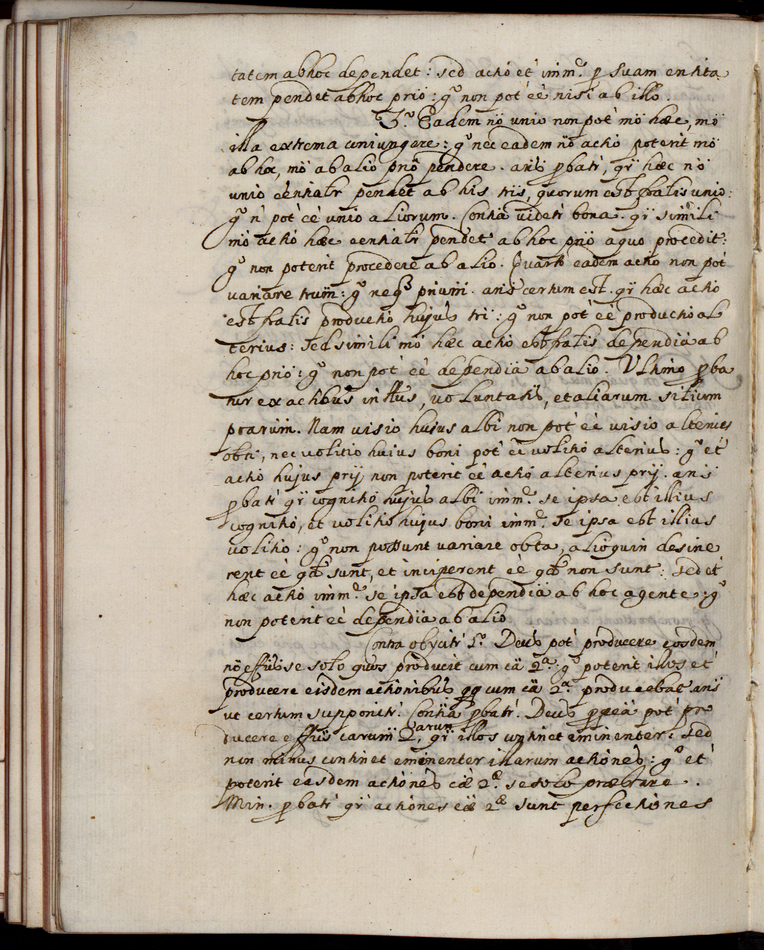 tatem ab hoc dependet: sed actio et imm.e p suam entita
tem pendet ab hoc prio: g.o non pot ée nisi ab illo.
3.o Eadem nō unio non pot mō hæc, mō
illa extrema coniungere: g.o nec eadem nō actio poterit mō
ab hoc, mō ab alio prio pendere. ans pbatr, qz hæc nō
unio éentialr pendet ab his tris, quorum est talis unio:
g.o n pot ée unio aliorum. Contia videtr bona. qz simili
mō actio hæc éentialr pendet ab hoc prio a quo procedit:
g.o non poterit procedere ab alio. Quarto eadem actio non pot
variare trum: g.o neq prium. ans certum est. qz hæc actio
est talis productio hujus tri: g.o non pot ée productio al
terius: sed simili mō hæc actio est talis dependia ab
hoc prio: g.o non pot ée dependia ab alio. Ultimo pba
tur ex actibus intus, voluntatis, et aliarum silium
ptarum. Nam visio hujus albi non pot ée visio alterius
obti, nec volitio huius boni pot ée volitio alterius: g.o et
actio hujus prij non poterit ée actio alterius prij. ans
pbatr qz cognitio hujus albi imm.e se ipsa est illius
cognitio, et volitio hujus boni imm.e se ipsa est illius
volitio: g.o non possunt variare obta, alioquin desine
rent ée qd sunt, et inciperent ée qd non sunt: sed et
hæc actio imm.e se ipsa est dependia ab hoc agente: g.o
non poterit ée dependia ab alio.
Contra obijcitr 1.o Deus pot producere eosdem
nō effus se solo quos producit cum cā 2.a: g.o poterit illos et
producere eisdem actionibus qq cum cā 2.a producebat ans
ut certum supponitr. Contia pbatr. Deus pterea pot pro
ducere effus carum 2.arum, qz illos continet eminenter: sed
non minus continet eminenter illarum actiones: g.o et
poterit easdem actiones cæ 2.æ se solo præstare.
Min. pbatr qz actiones cæ 2.æ sunt perfectiones